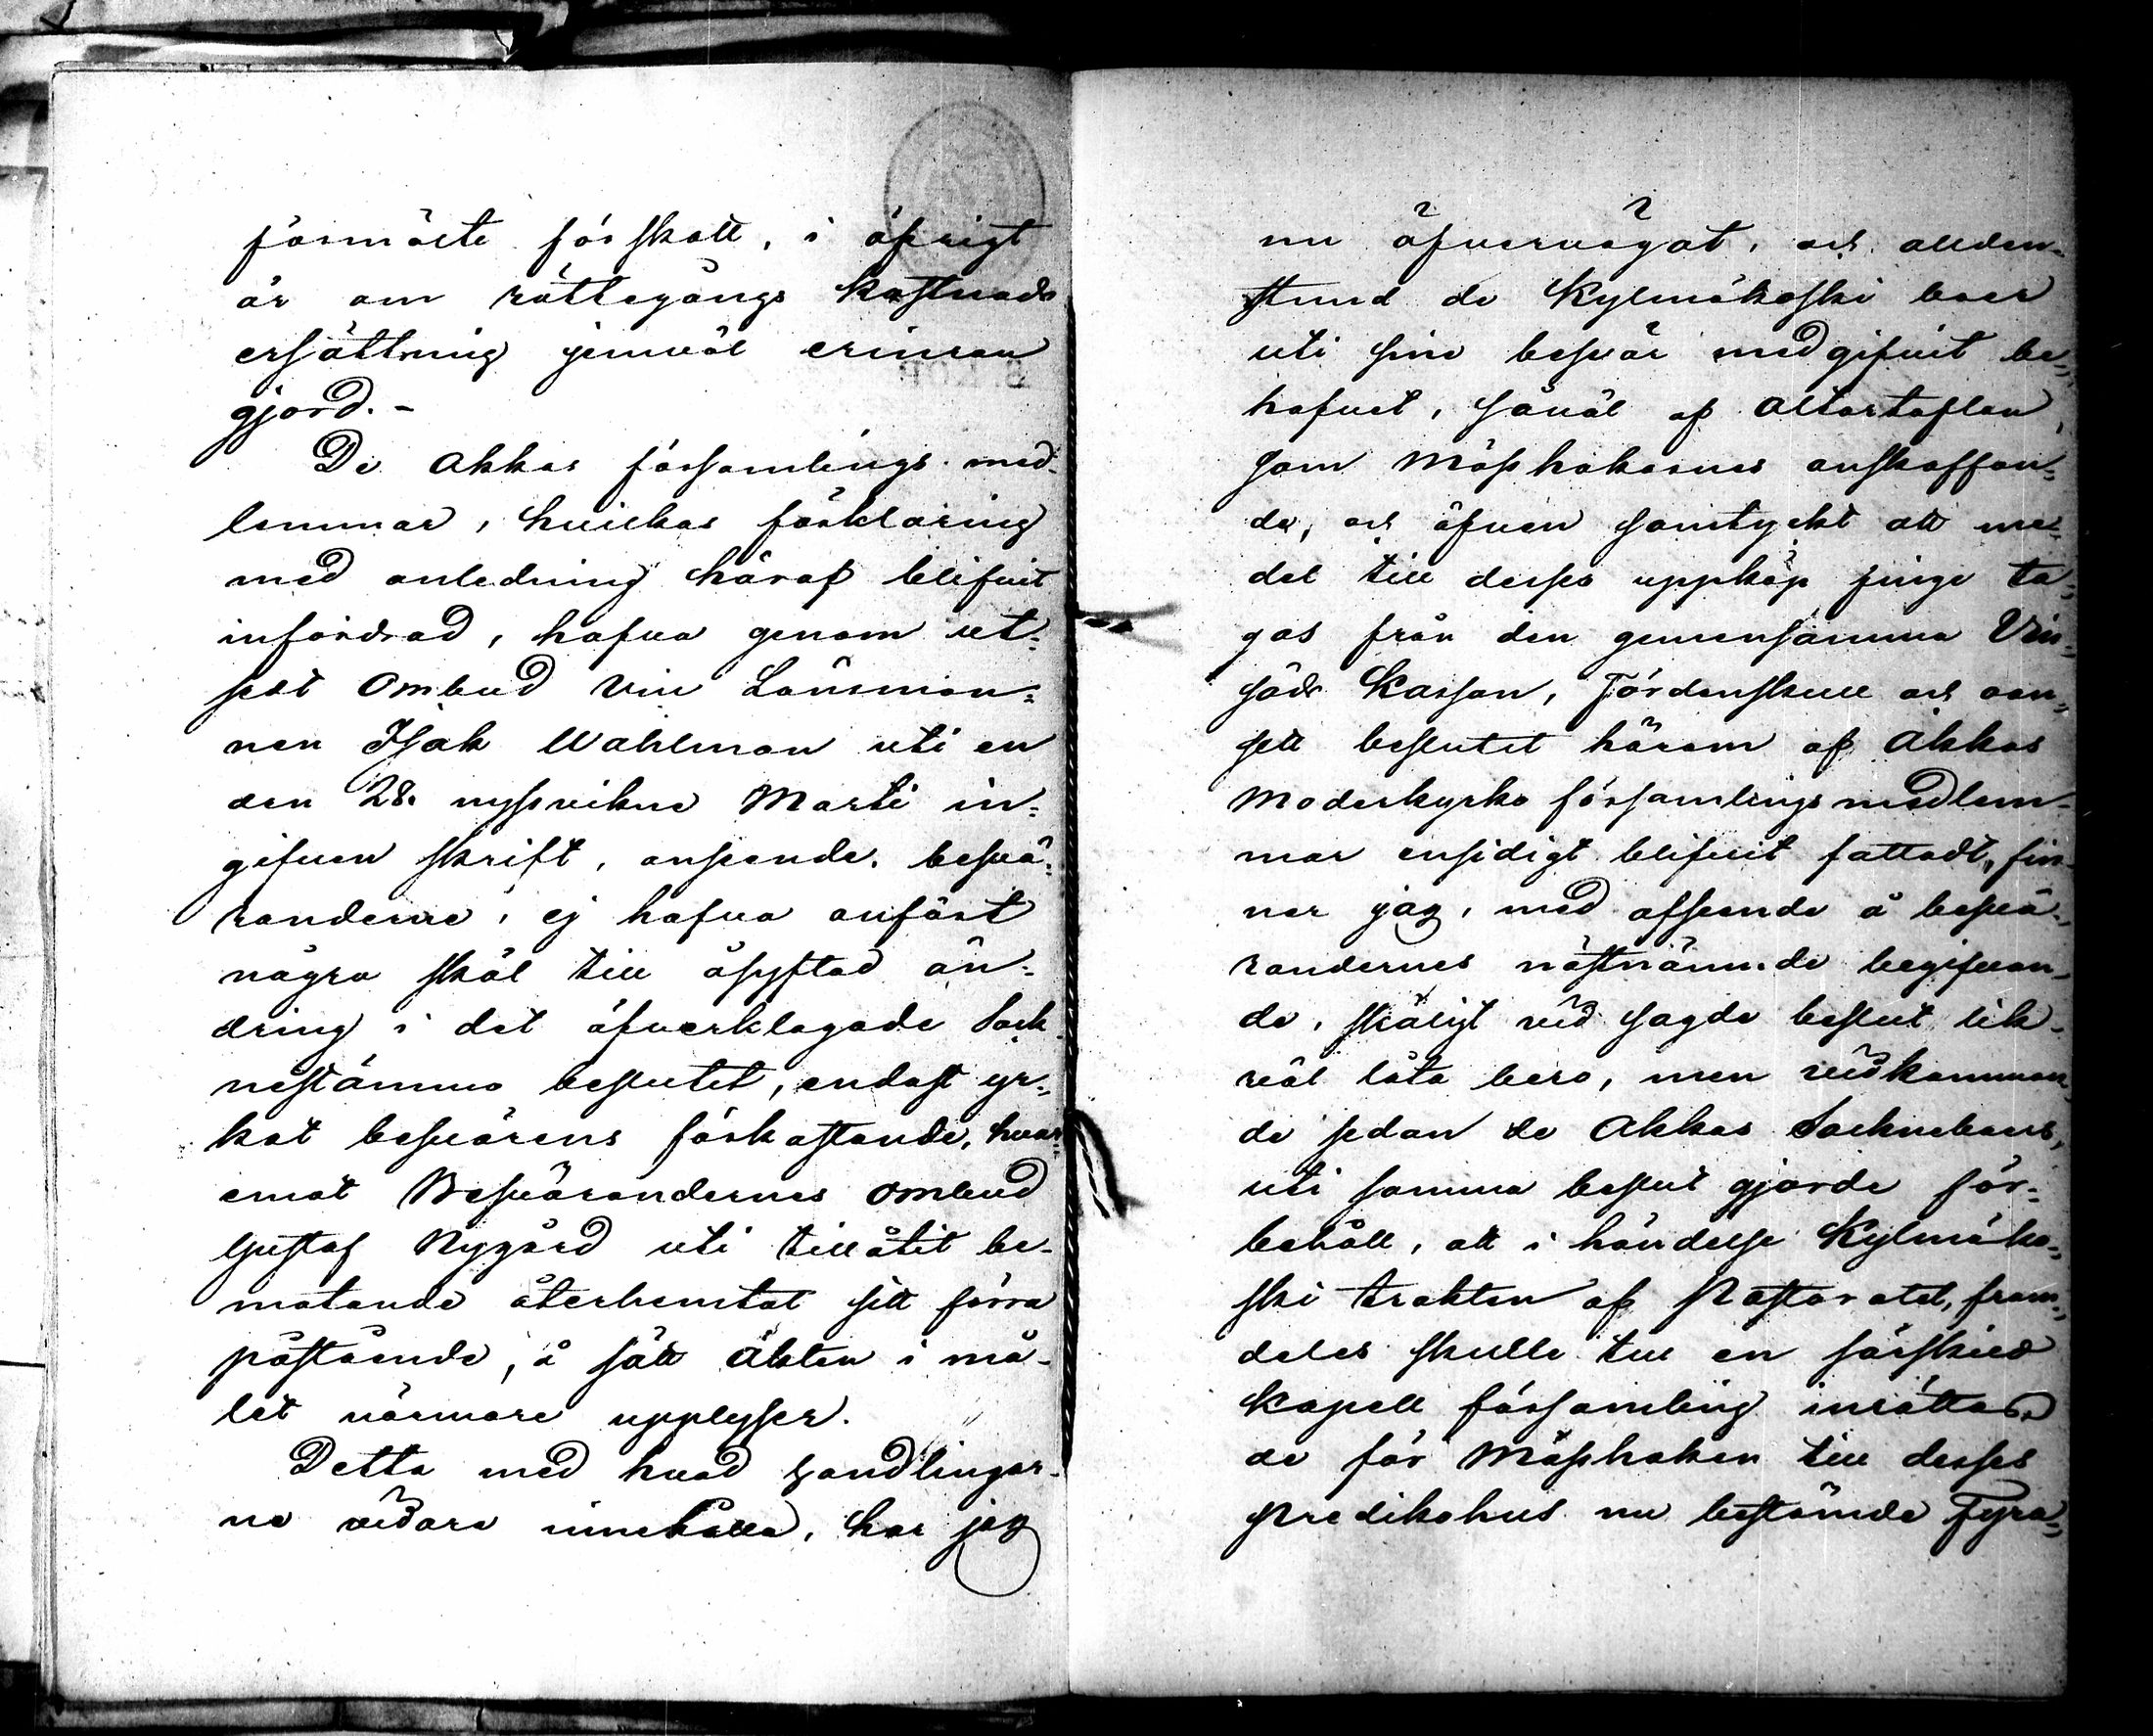 förmälte förskott, i öfrigt
är om rättegångs kostnads
ersättning jemväl erinran
gjord. -
De Akkas församlings med-
lemmar, hvilkas förklaring
med anledning häraf blifvit
infordrad, hafva genom ut-
sedt Ombud Vice Länsman-
nen Isak Wahlman uti en
den 28. nyssvikne Martii in-
gifven skrift, anseende, besvä-
randerne, ej hafva anfört
några skäl till åsyftad än-
dring i det öfverklagade Sock-
nestämmo beslutet, endast yr-
kat besvärens förkastande, hvar-
emot Besvärandernes ombud
Gustaf Nygård uti tillåtit be-
mötande återhemtat sitt förra
påstående, å sätt Akten i må-
let närmare upplyser.
Detta med hvad Handlingar-
ne vidare innehålla, har jag
nu öfvervägat, och allden-
stund de Kylmäkoski boer
uti sine besvär medgifvit be-
hofvet, såväl af Altartaflan,
som Mässhakarnes anskaffan-
de, och äfven samtyckt att me-
del till desses uppköp finge ta-
gas från den gemensamma Vin-
säds Kassan, Tördenskull och oan-
sett beslutet härom af Akkas
Moderkyrko församlings medlem-
mar ensidigt blifvit fattadt, fin-
ner jag, med afseende å besvä-
randernes nästnämnde begifvan-
de, skäligt vid sagde beslut lik-
väl låta bero, men vidkomman-
de sedan de Akkas Sockneboers,
uti samma beslut gjorde för-
behåll, att i händelse Kylmäko-
ski trakten af Pastoratet, fram-
deles skulle till en särskild
Kapell församling inrättas,
de för Mässhaken till desses
Predikohus nu bestämde Fyra-